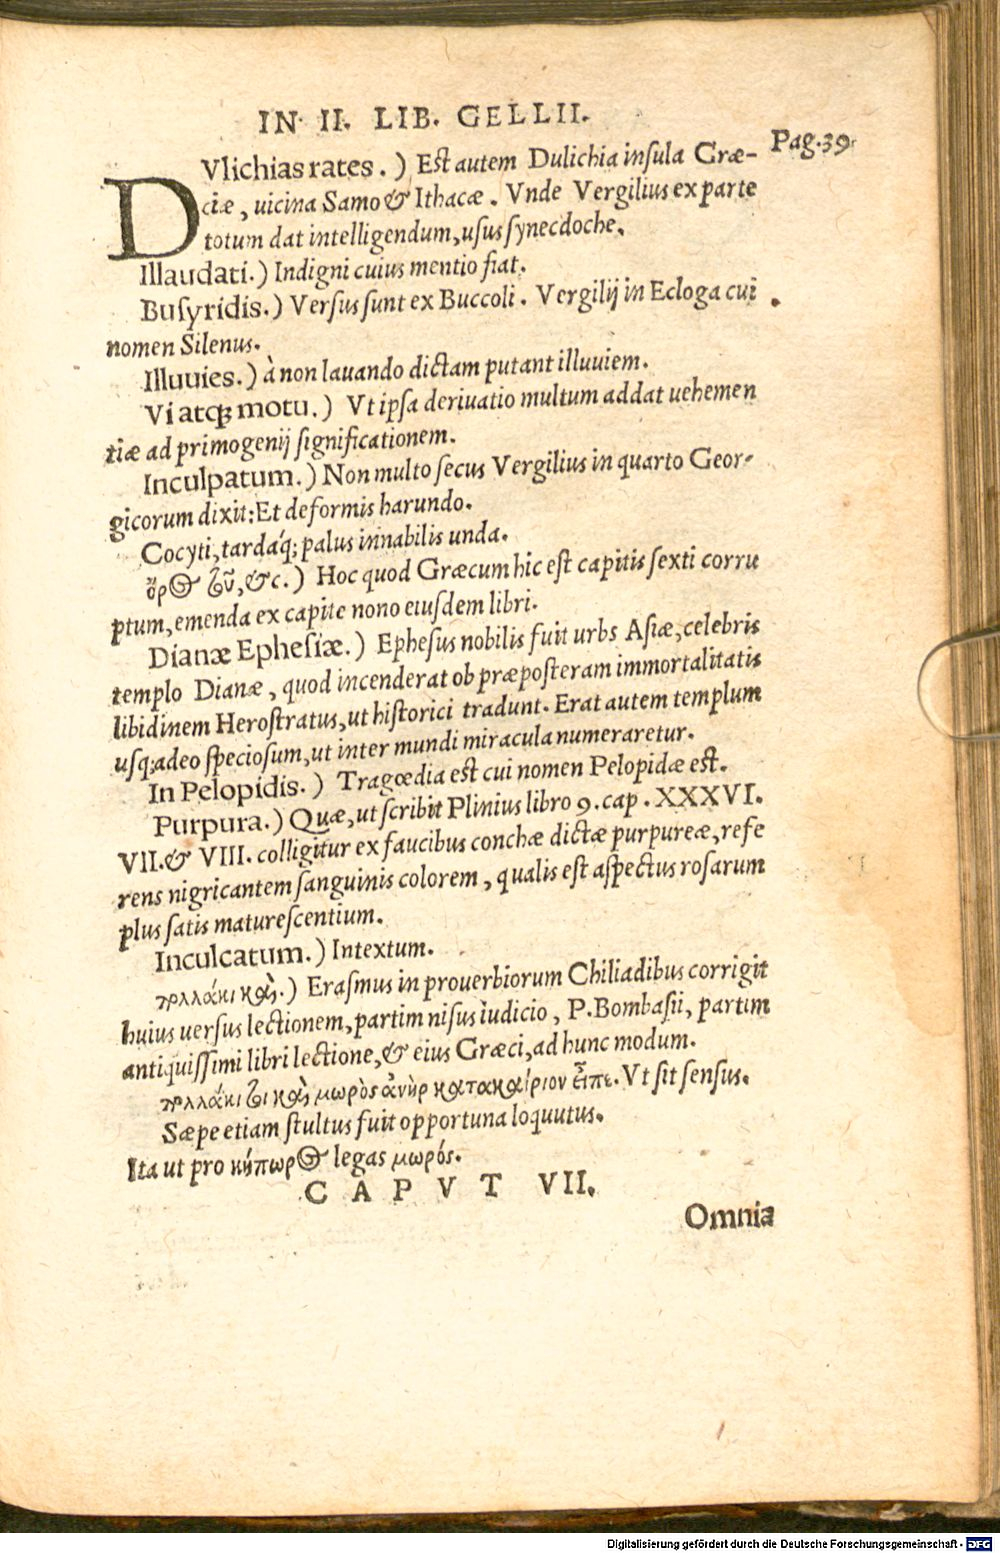 IN II. LIB. GELLII.
Pag.39.
DVlichias rates.) Est autem Dulichia insula Græ-
ciæ, uicina Samo & Ithacæ. Vnde Vergilius ex parte
totum dat intelligendum, usus synecdoche.
Illaudati.) Indigni cuius mentio fiat.
Busyridis.) Versus sunt ex Buccoli. Vergilij in Ecloga cui
nomen Silenus.
Illuuies.) à non lauando dictam putant illuuiem.
Vi atq; motu.) Vt ipsa deriuatio multum addat uehemen
tiæ ad primogenij significationem.
Inculpatum.) Non multo secus Vergilius in quarto Geor-
gicorum dixit: Et deformis harundo.
Cocyti, tardaq́; palus innabilis unda.
&c.) Hoc quod Græcum hic est capitis sexti corru
ptum, emenda ex capite nono eiusdem libri.
Dianæ Ephesiæ.) Ephesus nobilis fuit urbs Asiæ, celebris
templo Dianæ, quod incenderat ob præposteram immortalitatis
libidinem Herostratus, ut historici tradunt. Erat autem templum
usq; adeo speciosum, ut inter mundi miracula numeraretur.
In Pelopidis.) Tragœdia est cui nomen Pelopidæ est.
Purpura.) Quæ, ut scribit Plinius libro 9. cap. XXXVI.
VII. & VIII. colligitur ex faucibus conchæ dictæ purpureæ, refe
rens nigricantem sanguinis colorem, qualis est aspectus rosarum
plus satis maturescentium.
Inculcatum.) Intextum.
πολλάκι καὶ.) Erasmus in prouerbiorum Chiliadibus corrigit
huius uersus lectionem, partim nisus iudicio, P. Bombasii, partim
antiquissimi libri lectione, & eius Græci, ad hunc modum.
πολλάκι τοι καὶ μωρὸς ἀνὴρ κατακαίριον εἶπε. Vt sit sensus.
Sæpe etiam stultus fuit opportuna loquutus.
Ita ut pro κήπωρος legas μωρός.
CAPVT VII.
Omnia
Digitalisierung gefördert durch die Deutsche Forschungsgemeinschaft - DFG